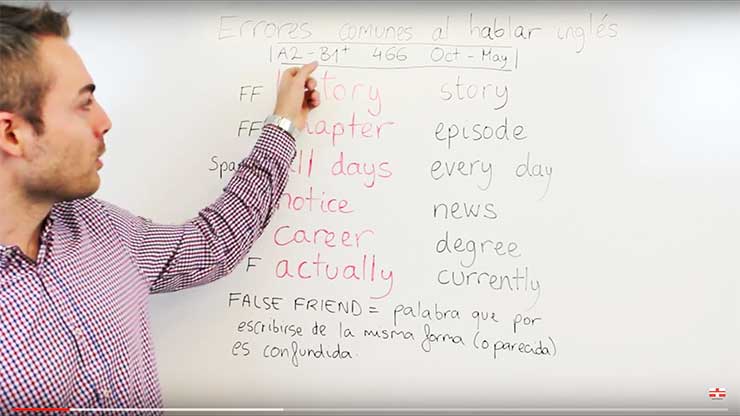 Errores comunes al hablar inglés
A2 - B1+ 466 Oct - May
FF story
FF episode
all days every day
notice news
career degree
F actually currently
FALSE FRIEND = palabra que por
escribirse de la misma forma (o parecida)
es confundida.